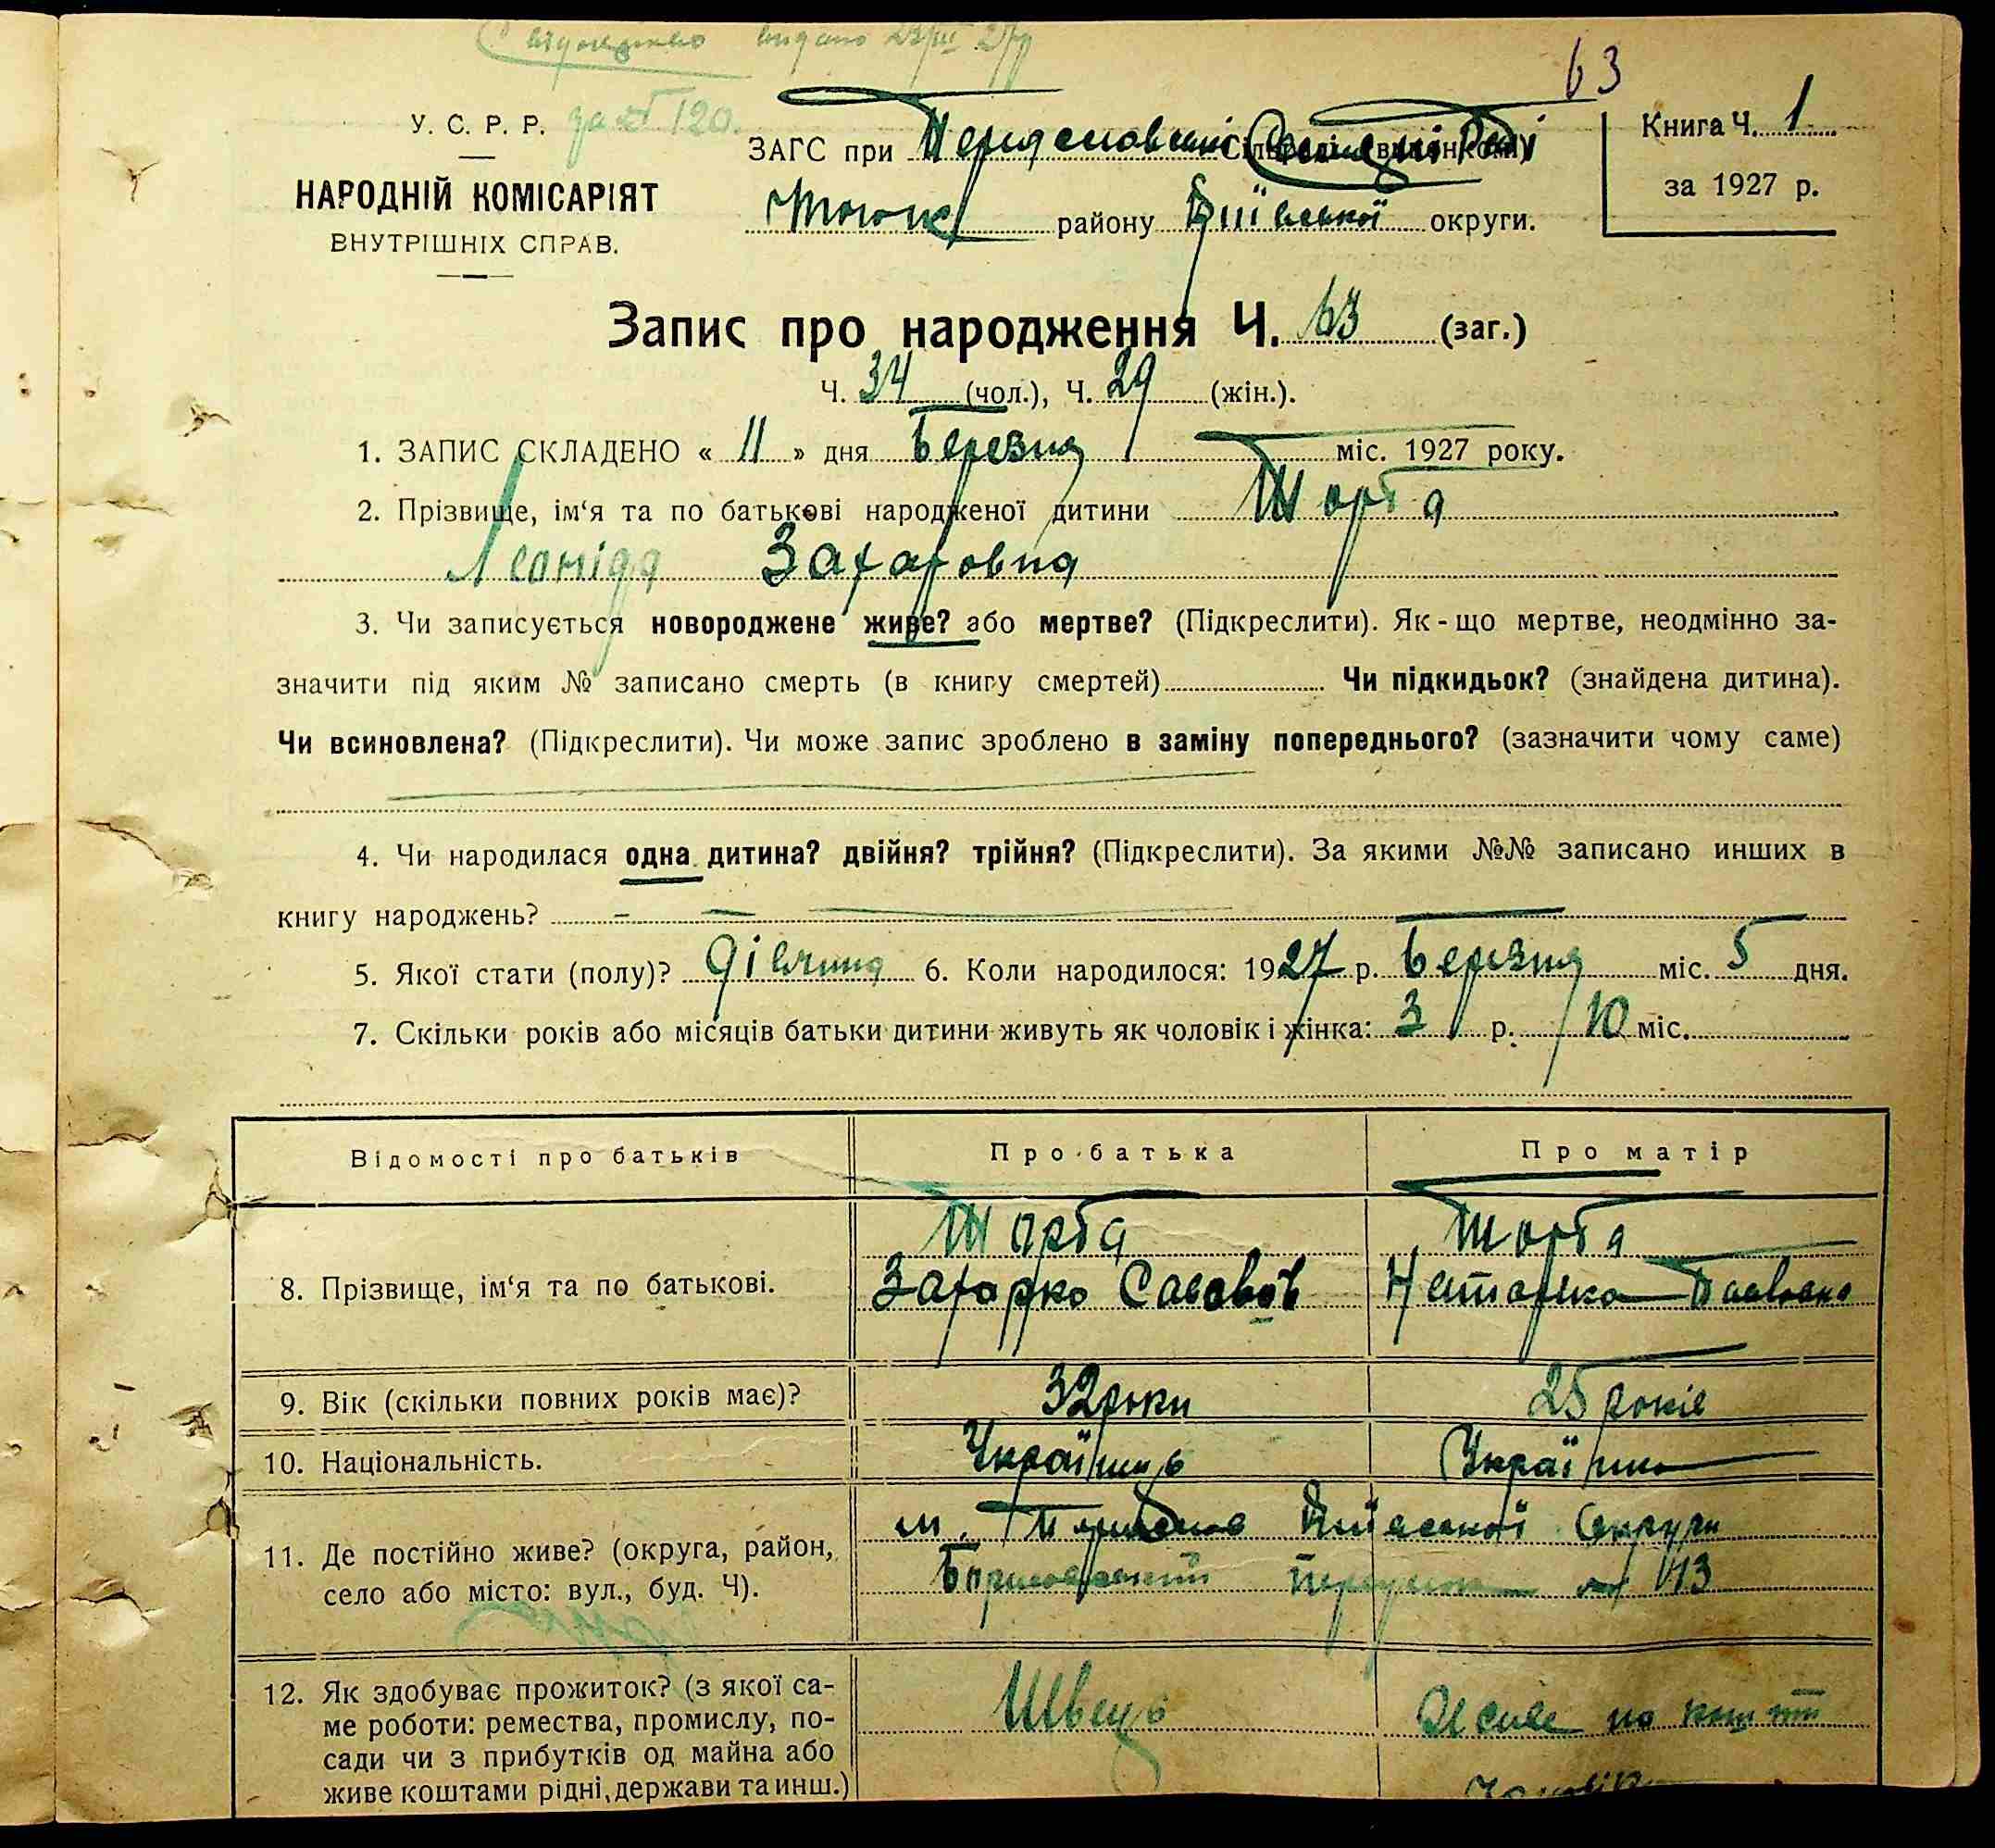 видано 23/III 27р
63
У. С. Р. Р. за № 120.
НАРОДНІЙ КОМІСАРІЯТ
ВНУТРІШНІХ СПРАВ.
ЗАГС при
району Київської округи.
Книга Ч. 1
за 1927 р.
Запис про народження Ч. 63 (заг.)
Ч. 34 (чол.), Ч. 29 (жін.).
1. ЗАПИС СКЛАДЕНО « 11 » дня Березня міс. 1927 року.
2. Прізвище, ім‘я та по батькові народженої дитини Торба
Леоніда Захаровна
3. Чи записується новороджене живе? або мертве? (Підкреслити). Як-що мертве, неодмінно за-
значити під яким № записано смерть (в книгу смертей) Чи підкидьок? (знайдена дитина).
Чи всиновлена? (Підкреслити). Чи може запис зроблено в заміну попереднього? (зазначити чому саме)
4. Чи народилася одна дитина? двійня? трійня? (Підкреслити). За якими №№ записано инших в
книгу народжень?
5. Якої стати (полу)? дівчина 6. Коли народилося: 1927 р. Березня міс. 5 дня.
7. Скільки років або місяців батьки дитини живуть як чоловік і жінка: 3 р. 10 міс.
Відомості про батьків Про батька Про матір
Торба Торба
8. Прізвище, ім‘я та по батькові. Захарко Савович Наталка Павловна
9. Вік (скільки повних років має)? 32 роки 25 років
10. Національність. Українець Українка
м. Київської Округи
11. Де постійно живе? (округа, район,
село або місто: вул., буд. Ч). № 113
12. Як здобуває прожиток? (з якої са-
ме роботи: ремества, промислу, по- Швець на кошти
сади чи з прибутків од майна або
живе коштами рідні, держави та инш.)